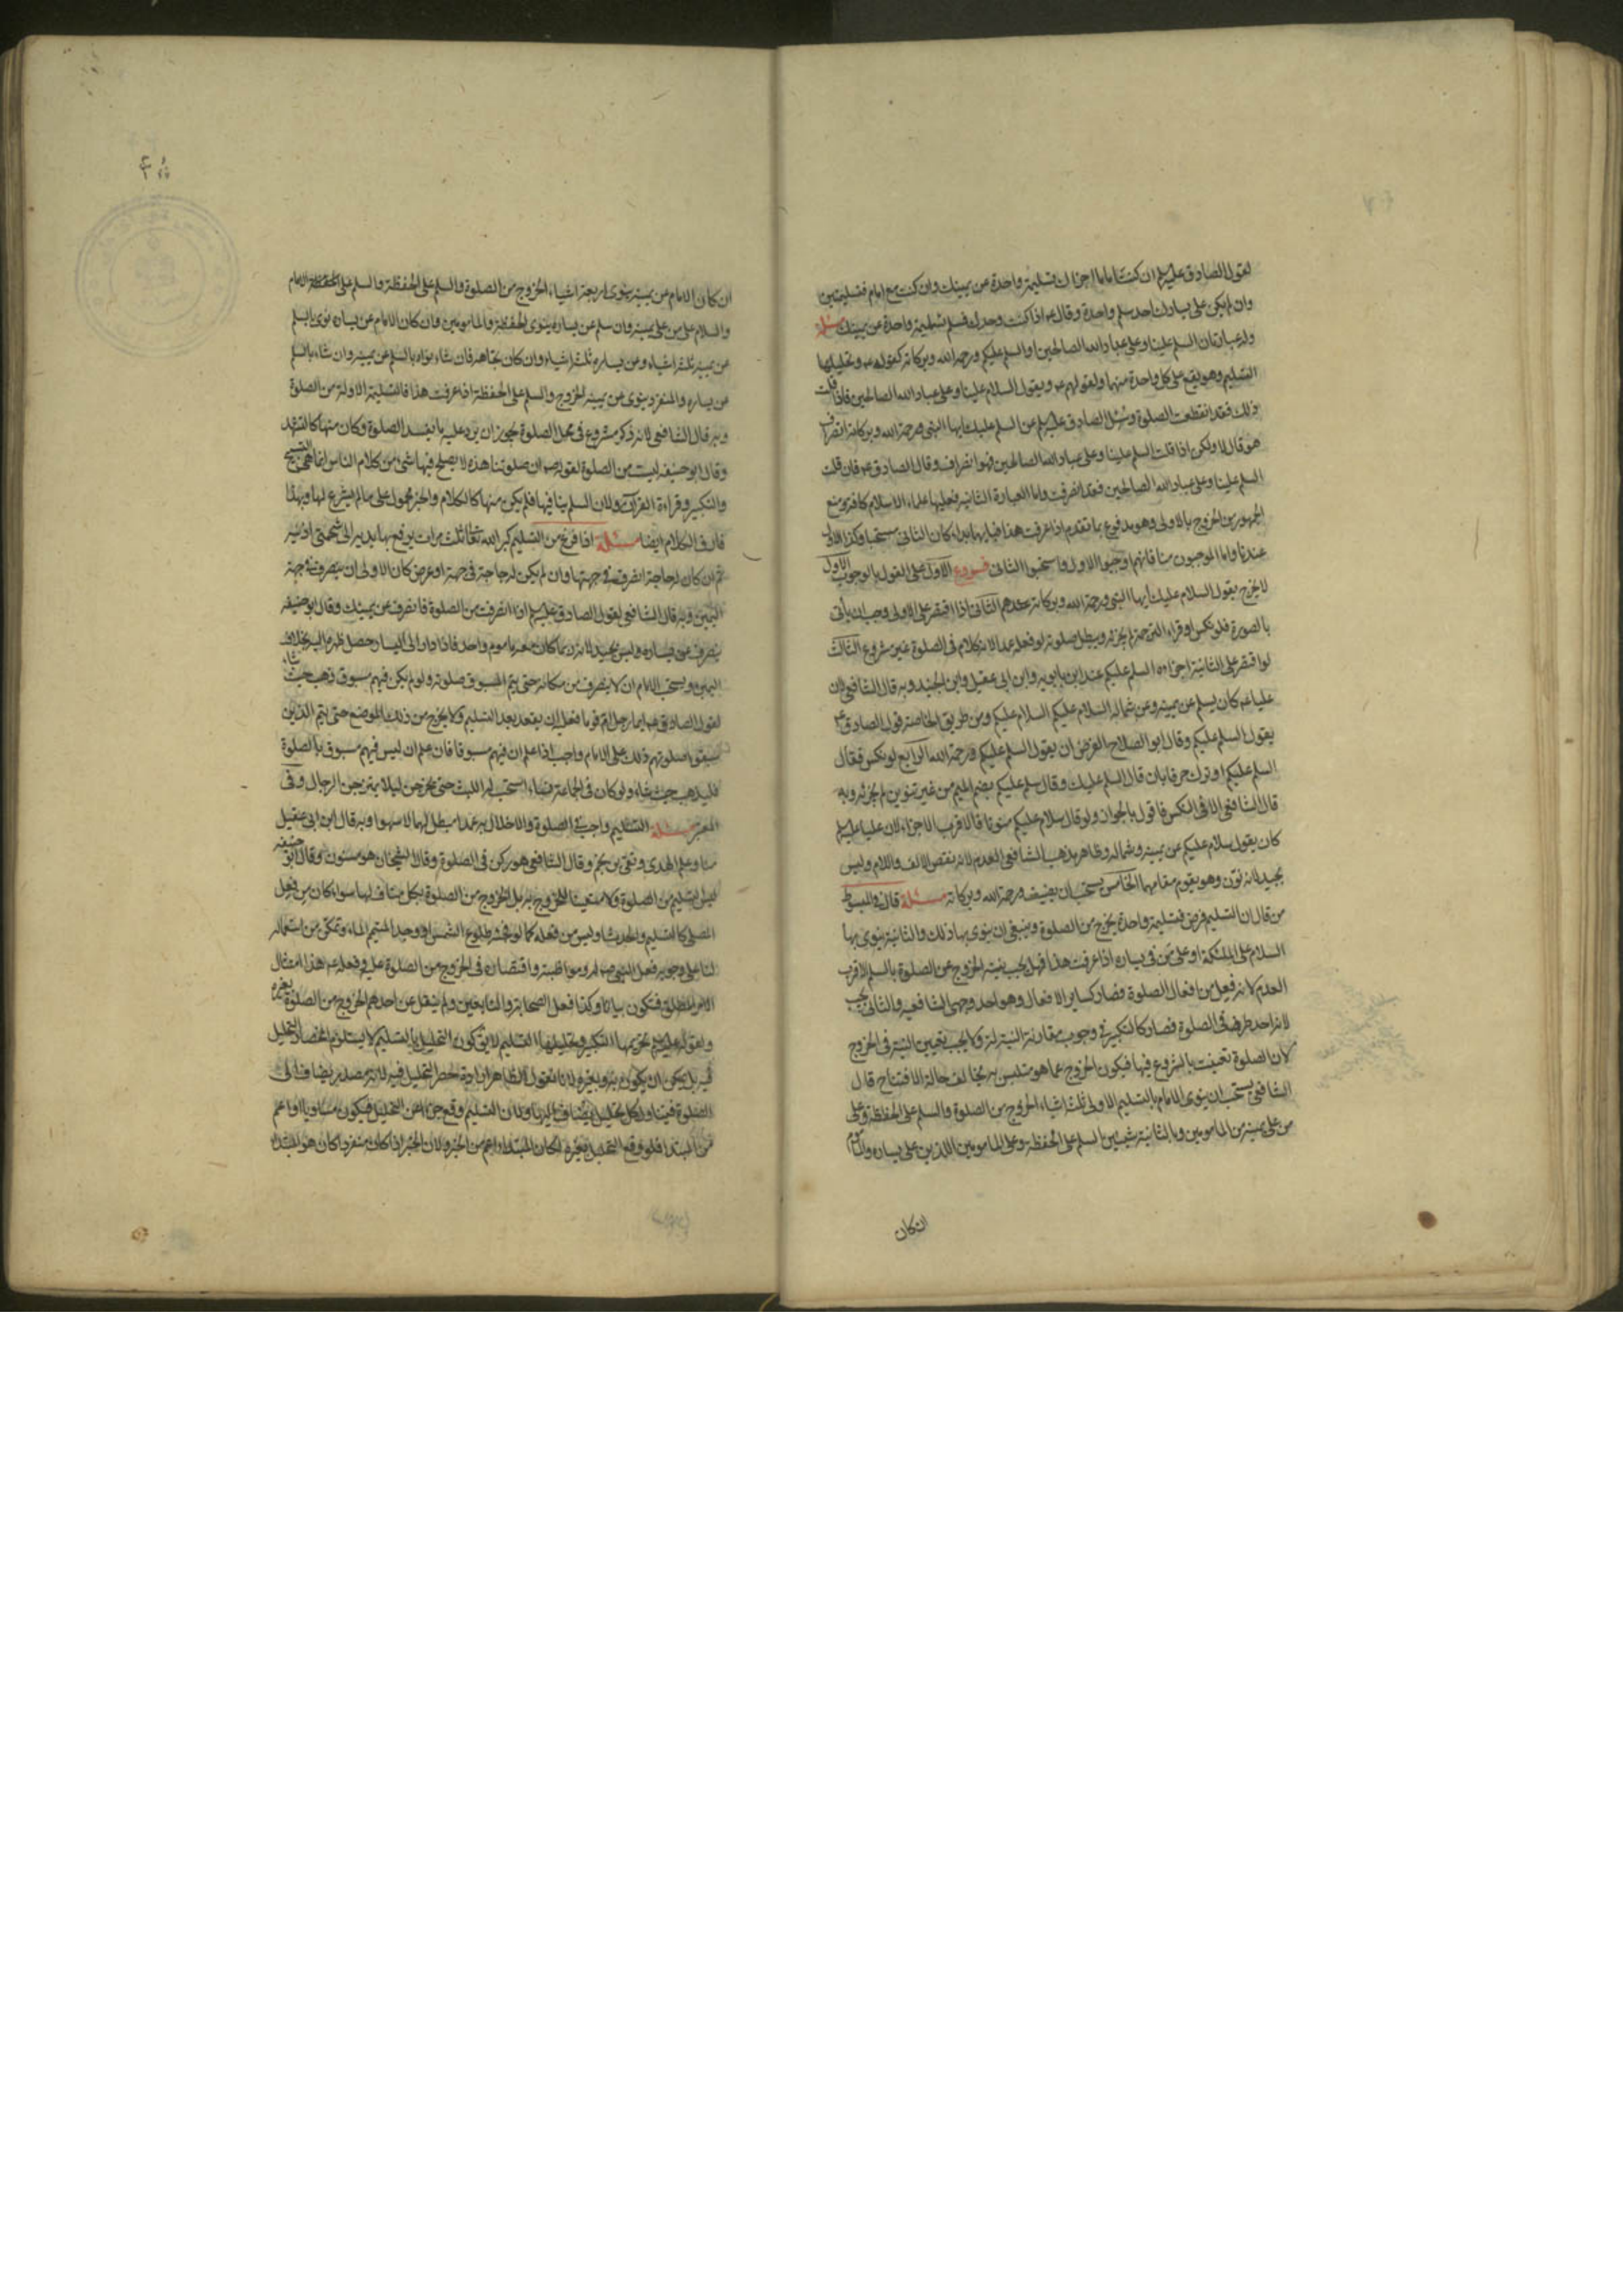 لقول الصادق عليه السلم ان كنت اماما اجزاك تسليمة واحدة عن يمينك وان كنت مع امام فتسليمتين
وان لم يكن على يسارك احد سلم واحدة وقال ع اذا كنت وحدك فسلم تسليمة واحدة عن يمينك مسئلة
وله عبارتان السلم علينا وعلى عباد الله الصالحين او السلم عليكم ورحمة الله وبركاته كقوله ع وتحليلها
التسليم وهو يقع على كل واحدة منهما ولقولهم ع ويقول السلام علينا وعلى عباد الله الصالحين فاذا قلت
ذلك فقد انقطعت الصلوة وسئل الصادق عليه السلم عن السلم عليك ايها النبى ورحمة الله وبركاته انصراف
هو قال لا ولكن اذا قلت السلم علينا وعلى عباد الله الصالحين فهو انصراف وقال الصادق ع فان قلت
السلم علينا وعلى عباد الله الصالحين فقد انصرفت واما العبارة الثانية فعليها علماء الاسلام كافة ومنع
الجمهور من الخروج بالاولى وهو مدفوع بما تقدم اذا عرفت هذا فبايهما بدا كان الثانى مستحبا وكذا الاول
عندنا واما الموجبون منا فانهم اوجبوا الاول واستحبوا الثانى فروع الاول على القول بالوجوب الاول
لا يخرج بقول السلام عليك ايها النبى ورحمة الله وبركاته عندهم الثانى اذا اقتصر على الاولى وجب ان ياتى
بالصورة فلو نكس او قراء الترجمة لم يجزه ويبطل صلوته لو فعله عمدا لانه كلام فى الصلوة غير مشروع الثالث
لو اقتصر على الثانية اجزاه السلم عليكم عند ابن بابويه وابن ابى عقيل وابن الجنيد وبه قال الشافعى لان
عليا ع كان يسلم عن يمينه وعن شماله السلام عليكم السلام عليكم ومن طريق الخاصة قول الصادق ع
يقول السلم عليكم وقال ابو الصلاح الفرض ان يقول السلم عليكم ورحمة الله الرابع لو نكس فقال
السلم عليكم او ترك حرفا بان قال السلم عليك وقال سلم عليكم بضم الميم من غير تنوين لم يجزئه وبه
قال الشافعى الا فى النكس فاقول بالجواز ولو قال سلام عليكم منونا فالاقرب الاجزاء لان عليا عليه السلم
كان يقول سلام عليكم عن يمينه وشماله وظاهر مذهب الشافعى العدم لانه نقص الالف واللام وليس
بجيد لانه نون وهو يقوم مقامهما الخامس يستحب ان يضيف ورحمة الله وبركاته مسئلة قال فى المبسوط
من قال ان التسليم فرض فتسليمة واحدة يخرج من الصلوة وينبغى ان ينوى بها ذلك والثانية ينوى بها
السلام على الملئكة او على من فى يساره اذا عرفت هذا فهل يجب نية الخروج عن الصلوة بالسلم الاقرب
العدم لانه فعل من افعال الصلوة فصار كساير الافعال وهو احد وجهى الشافعية والثانى يجب
لانه احد طرفى الصلوة فصار كالتكبير فى وجوب مقارنة النية له ولا يجب تعيين النية فى الخروج
لان الصلوة تعينت بالشروع فيها فيكون الخروج عما هو متلبس به بخالف حالة الافتتاح قال
الشافعى يستحب ان ينوى الامام بالتسليم الاولى ثلثة اشياء الخروج من الصلوة والسلم على الحفظة وعلى
من على يمينه من المامومين وبالثانية شيئين السلم على الحفظة وعلى المامومين اللذين على يساره والماموم
ان كان
ان كان الامام عن يمينه ينوى اربعة اشياء الخروج من الصلوة والسلم على الحفظة والسلم على الامام
والسلام على من على يمينه وان سلم عن يساره ينوى الحفظة والمامومين وان كان الامام عن يساره نوى بالسلم
عن يمينه ثلثة اشياء وعن يساره ثلثة اشياء وان كان بحذاه فان شاء نواه بالسلم عن يمينه وان شاء بالسلم
عن يساره والمنفرد ينوى عن يمينه الخروج والسلم على الحفظة اذا عرفت هذا فالتسليمة الاولة من الصلوة
وبه قال الشافعى لانه ذكر مشروع فى محل الصلوة يجوز ان يرد عليه ما يفسد الصلوة وكان منها كالتشهد
وقال ابو حنيفة ليست من الصلوة لقوله ص ان صلوتنا هذه لا يصلح فيها شئ من كلام الناس انما هى التسبيح
والتكبير وقراءة القران ولان السلم ينافيها فلم يكن منها كالكلام والخبر محمول على ما لم يشرع لها وبهذا
فارق الكلام ايضا مسئلة اذا فرغ من التسليم كبر الله تعالى ثلث مرات يرفع بها يديه الى شحمتى اذنيه
ثم ان كان له حاجة انصرف فى جهتها وان لم يكن له حاجة فى جهة او عرض كان الاولى ان ينصرف فى جهة
اليمين وبه قال الشافعى لقول الصادق عليه السلم اذا انصرفت من الصلوة فانصرف عن يمينك وقال ابو حنيفة
ينصرف عن يساره وليس بجيد لانه ربما كان معه ماموم واحد فاذا دار الى اليسار حصل ظهره اليه بخلاف
اليمين ويستحب للامام ان لا ينصرف من مكانه حتى يتم المسبوق صلوته ولو لم يكن فيهم مسبوق ذهب حيث شاء
لقول الصادق ع ايما رجل ام قوما فعليه ان يقعد بعد التسليم ولا يخرج من ذلك الموضع حتى يتم الذين
سبقوا صلوتهم ذلك على الامام واجب اذا علم ان فيهم مسبوقا فان علم ان ليس فيهم مسبوق بالصلوة
فليذهب حيث شاء ولو كان فى الجماعة نساء استحب له اللبث حتى يخرجن ليلا يمتزجن الرجال وفى
مسئلة التسليم واجب فى الصلوة والاخلال به عمدا مبطل لها لا سهوا وبه قال ابن ابى عقيل
منا وعلم الهدى وتقى بن نجم وقال الشافعى هو ركن فى الصلوة وقال الشيخان هو مسنون وقال ابو حنيفة
ليس التسليم من الصلوة ولا متعينا للخروج به بل الخروج من الصلوة بكل مناف لها سواء كان من فعل
المصلى كالتسليم والحدث او ليس من فعله كما لو طلوع الشمس او وجد المتيم الماء وتمكن من استعماله
لنا على وجوبه فعل النبى ص له ومواظبته واقتصاره فى الخروج من الصلوة عليه وفعله ع هذا امتثال
الامر المطلق فتكون بيانا وكذا فعل الصحابة والتابعين ولم ينقل عن احدهم الخروج من الصلوة بغيره
ولقوله عليه السلم تحريمها التكبير وتحليلها التسليم لا يق كون التحليل بالتسليم لا يستلزم انحصار التحليل
فيه بل يمكن ان يكون به وبغيره لانا نقول الظاهر ارادة حصر التحليل فيه لانه مصدر مضاف الى
الصلوة فيتناول كل تحليل يضاف اليها ولان التسليم وقع خبرا عن التحليل فيكون مساويا او اعم
من المبتدا فلو وقع التحليل بغيره لكان المبتداء اعم من الخبر ولان الخبر اذا كان مفردا كان هو المبتدا